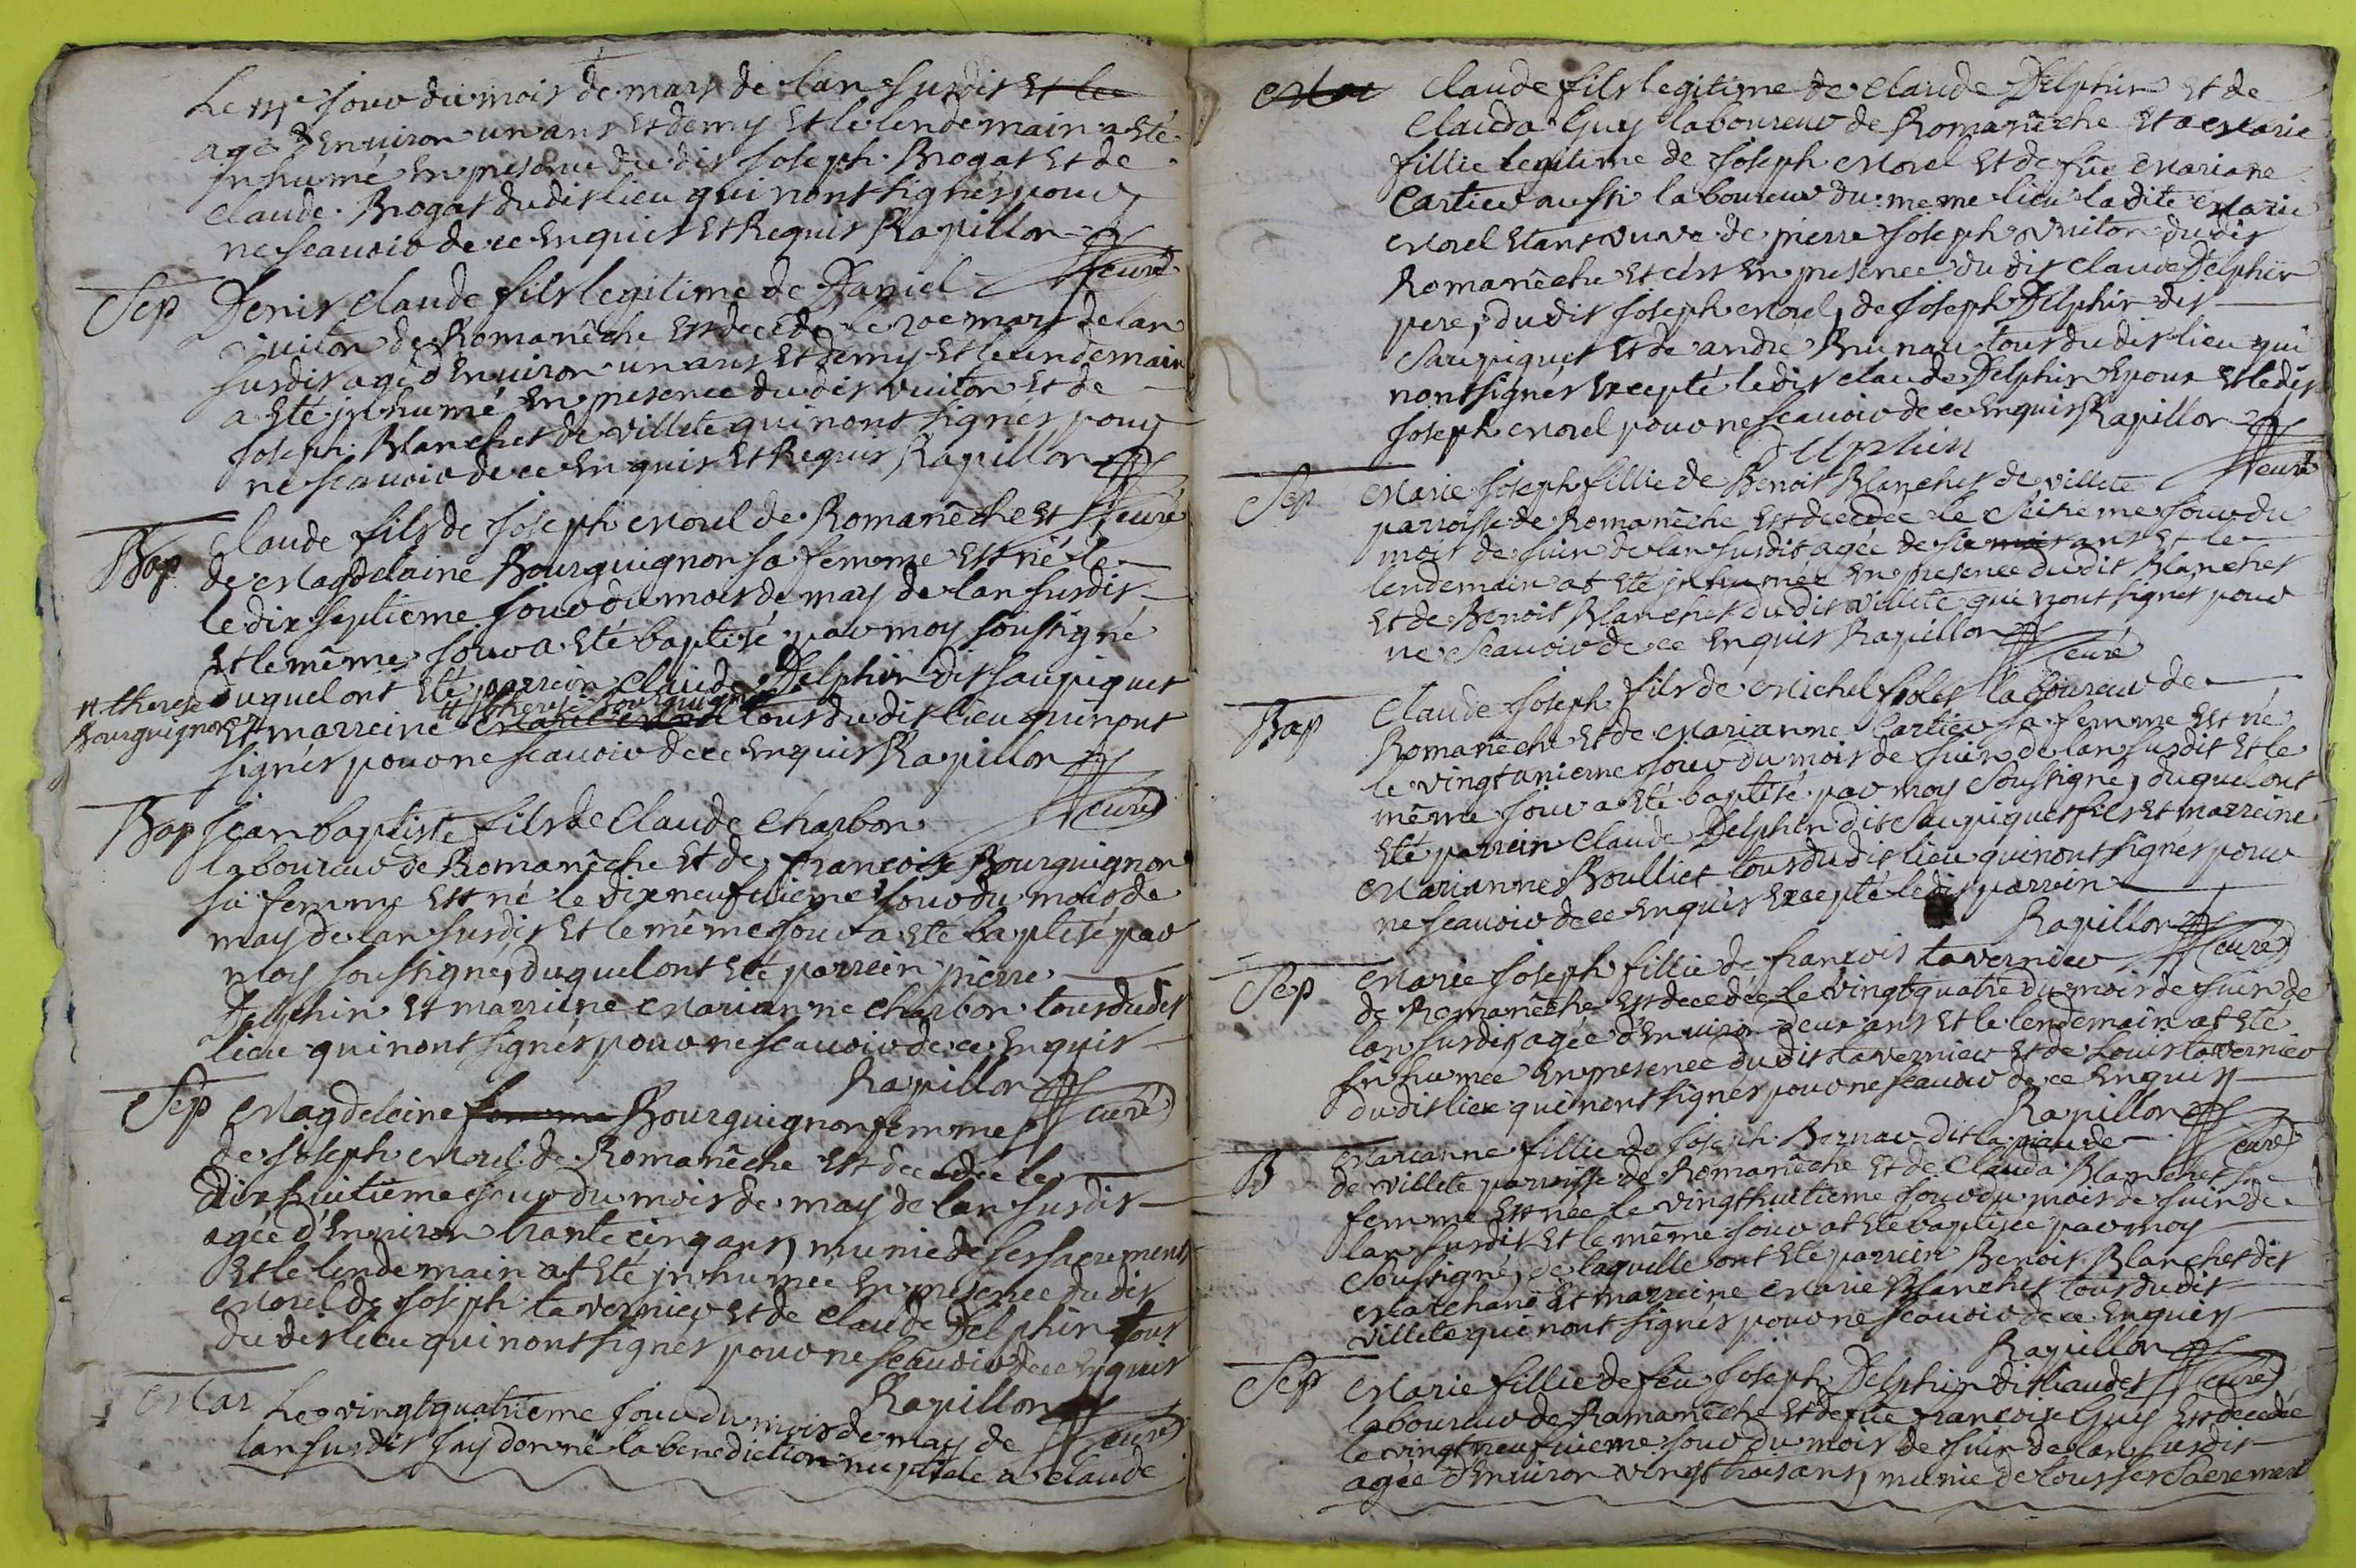 Le jour du mois de mars de lan susdit et le
agé d'environ un ans et demy et le lendemain a eté
inhumé en presence du dit Joseph Brogat et de
Claude Brogat dudit lieu qui nont signés pour
ne scavoir de ce enquis et Requis Rapillon
curé
Sep Denis Claude fils legitime de Daniel
vuiton de Romanêche est decedé le 20e mars de lan
susdit agé d'environ un ans et demy et le lendemain
a eté inhumé en presence du dit vuiton et de
Joseph Blanchet de villete qui nont signés pour
ne scavoir de ce enquis et Requis Rapillon
curé
Bap Claude fils de Joseph Morel de Romanêche et
de Magdelaine Bourguignon sa femme est né le
le dix septieme jour du mois de may de lan susdit
et le même jour a eté baptisé par moy soussigné
duquel ont eté parrein Claude Delphin dit saupiquet
# therese Bourguignon
et marreine # therese Bourguignon tous dudit lieu qui nont
signés pour ne scavoir de ce enquis Rapillon
curé
Bap Jean baptiste fils de Claude Charbon
laboureur de Romanêche et de françoise Bourguignon
sa femme est né le dixneufuieme jour du mois de
may de lan susdit et le même jour a eté baptisé par
moy soussigné, duquel ont eté parrein pierre
Delphin et marreine Marianne Charbon tous dudit
lieu qui nont signés pour ne scavoir de ce enquis
Rapillon
curé
Sep Magdeleine femme Bourguignon femme
de Joseph Morel de Romanêche est decedée le
dixhuitieme jour du mois de may de lan susdit
agée d'environ trante cinq ans, munie de ses sacrements
et le lendemain at eté inhumée en presence du dit
Morel de Joseph tavernier et de Claude Delphin tous
du dit lieu qui nont signés pour ne scavoir de ce enquis
Rapillon
curé
Mar Le vingtquatrieme jour du mois de may de
lan susdit j'ay donné la benediction nuptiale a Claude
Mar Claude fils legitime de Claude Delphin et de
Clauda Guy laboureur de Romanêche et a Marie
fillie legitime de Joseph Morel et de füe Mariane
Cartier aussi laboureur du meme lieu la dite Marie
Morel etant veuve de pierre Joseph vuiton dudit
Romanêche et cest en presence du dit Claude Delphin
pere, du dit Joseph Morel, de Joseph Delphin dit
Saupiquet et de andré Brunau tous dudit lieu qui
nont signés excepté le dit Claude Delphin epoux et ledit
Joseph Morel pour ne scavoir de ce enquis Rapillon
Delphin
curé
Sep Marie Joseph fillie de Benoit Blanchet de villete
parroisse de Romanêche est decedée le Seizieme jour du
mois de juin de lan susdit agée de six mois ans et le
lendemain at eté inhumée en presence dudit Blanchet
et de Benoit Blanchet dudit villete qui nont signés pour
ne scavoir de ce enquis Rapillon
curé
Bap Claude Joseph fils de Michel laboureur de
Romanêche et de Marianne Cartier sa femme est né
le vingtunieme jour du mois de juin de lan susdit et le
même jour a eté baptisé par moy Soussigné, duquel ont
eté parrein Claude Delphin dit saupiquet fils et marreine
Marianne Boulliet tous dudit lieu qui nont signés pour
ne scavoir de ce enquis excepté le dit parrein
Rapillon
curé
Sep Marie Joseph fillie de françois tavernier
de Romanêche est decedée le vingtquatre du mois de juin de
lan susdit agée d'environ deux ans et le lendemain at eté
inhumée en presence du dit tavernier et de Louis tavernier
du dit lieu qui nont signés pour ne scavoir de ce enquis
Rapillon
curé
B Marianne fillie de Joseph dit la
de villete parroisse de Romanêche et de Clauda Blanchet sa
femme est née le vingthuitieme jour du mois de juin de
lan susdit et le même jour at eté baptisée par moy
Soussigné, de laquelle ont eté parrein Benoit Blanchet dit
Marchand et marreine Marie Blanchet tous du dit
villete qui nont signés pour ne scavoir de ce enquis
Rapillon
curé
Sep Marie fillie de feu Joseph Delphin dit
laboureur de Romanêche et de füe françoise Guy est decedée
le vingtneufuieme jour du mois de juin de lan susdit
agée d'environ vingt trois ans, munie de tous ses Sacrement